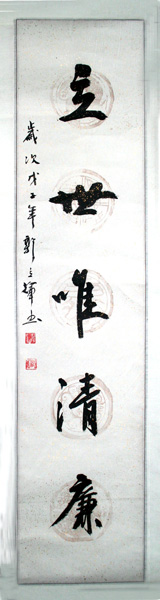 立世唯清廉
歲次戊子年郭立輝书